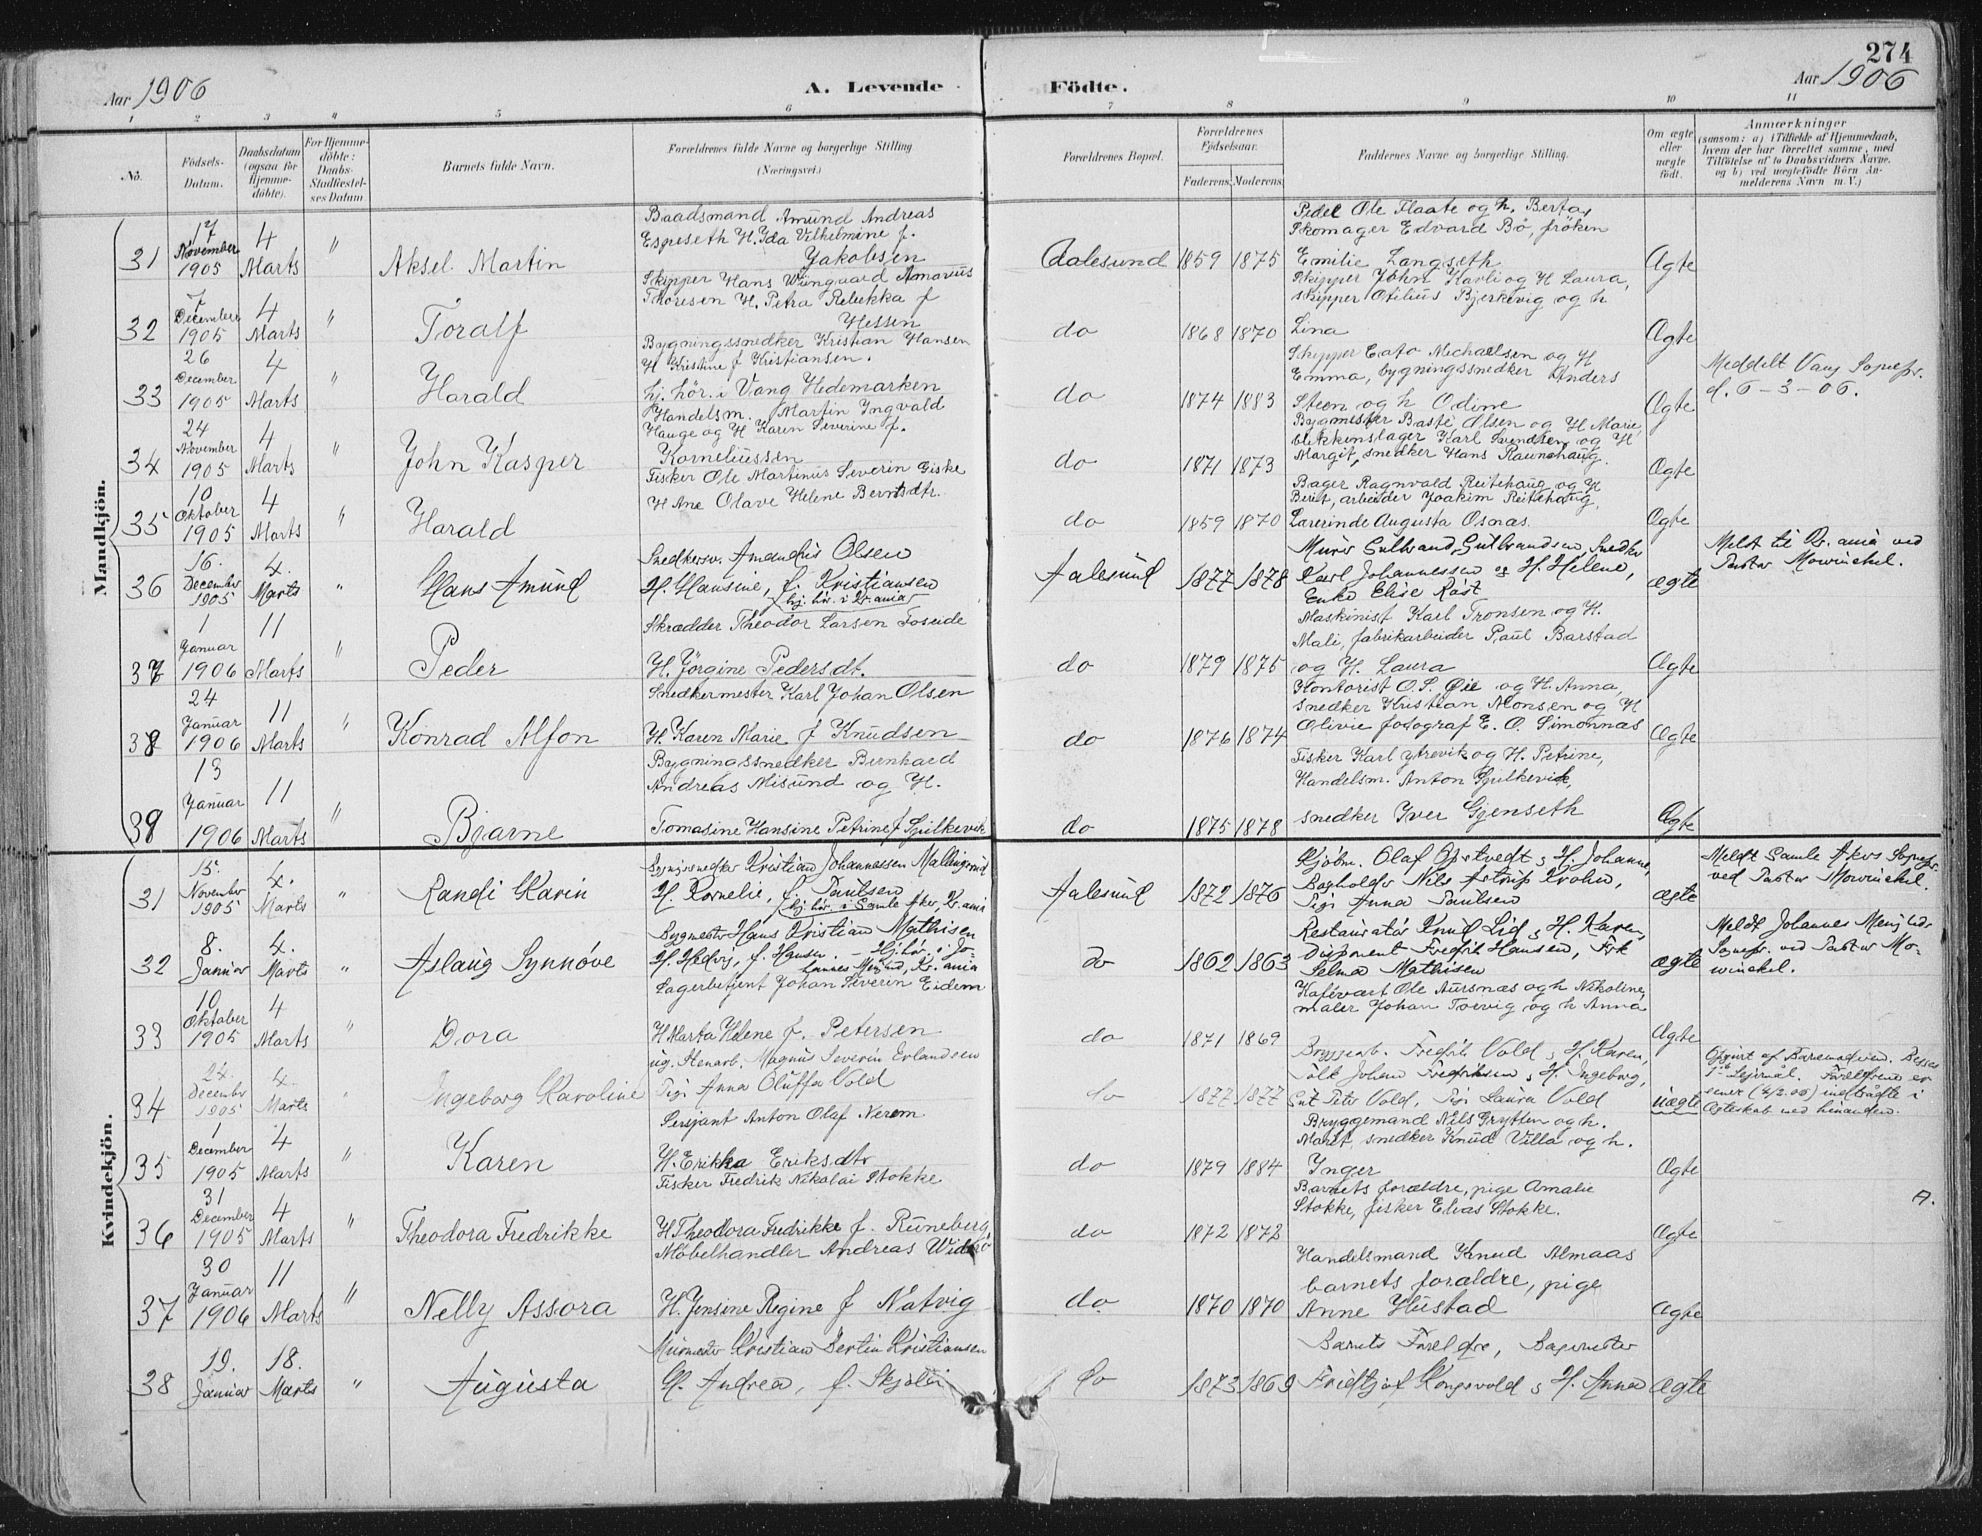 274
Aar 1906
A. Levende Födte.
Aar 1906
1 2 3 4 5 6 7 8 9 10 11
No.
Födsels-Datum.
Daabsdatum (ogsaa for Hjemmedöbte).
For Hjemmedöbte: Daabs-Stadfæstelses Datum
Barnets fulde Navn.
Forældrenes fulde Navne og borgerlige Stilling (Næringsvei.)
Forældrenes Bopæl.
Forældrenes Födselsaar.
Faderens Moderens
Faddernes Navne og borgerlige Stilling.
Om ægte eller uægte födt.
Anmærkninger
(saasom: a) i Tilfælde af Hjemmedaab, hvem der har forrettet samme, med Tilföielse af to Daabsvidners Navne, og b) ved uægtefödte Börn Anmelderens Navn m.V.)
Mandkjön.
31 17 November 1905 4 Marts " Aksel Martin
Baadsmand Amund Andreas
Espeseth H. Ida Vilhelmine f.
Jakobsen
Aalesund 1859 1875
Pedel Ole Flaate og h. Berta,
Skomager Edvard Bö, fröken
Emilie Langseth
Ægte
32 7 December 1905 4 Marts " Toralf
Skipper Hans Wüngaard Amavus
Thoresen H. Petra Rebekka f
Hessen
do 1868 1870
Skipper John Kavli og H Laura,
skipper Otilius Bjerkevig og h
Lina
Ægte
33 26 December 1905 4 Marts " Harald
Bygningssnedker Kristian Hansen
H Kristine f Kristiansen.
hj. hör. i Vang Hedemarken
do 1874 1883
Skipper Eato Michaelsen og H
Emma, bygningssnedker Anders
Steen og h Odine
Ægte
Meddelt Vang Sognepr.
d. 6-3-06.
34 24 November 1905 4 Marts " John Kasper
Handelsm. Martin Ingvald
Hauge og H Karen Severine f.
Korneliussen
do 1871 1873
Bygmester Baste Olsen og H Marie
blikkenslager Karl Svendsen og H
Margit, snedker Hans Raunehaug.
Ægte
35 10 Oktober 1905 4 Marts " Harald
Fisker Ole Martinus Severin Giske
H Ane Olave Helene Berntsdtr.
do 1859 1870
Bager Ragnvald Reitehaug og H
Berit, arbeider Joakim Reitehaug,
Lærerinde Augusta Osnas.
Ægte
36 16. December 1905 4. Marts " Hans Amund
Snedkersv. Amandus Olsen
H. Hansine, f. Kristiansen
hj. hör. i Kr.ania
Aalesund 1877 1878
Murer Gulbrand Gulbrandsen, Snedker
Karl Johannessen og H. Helene,
Enke Elise Röst
ægte
Meldt til Kr.ania ved
Pastor Mowinckel.
37 1 Januar 1906 11 Marts " Peder
Skrædder Theodor Larsen Foseide
H. Jörgine Pedersdt.
do 1879 1875
Maskinist Karl Tronsen og H.
Mali, fabrikarbeider Paul Barstad
og H. Laura
Ægte
38 24 Januar 1906 11 Marts " Konrad Alfon
Snedkermester Karl Johan Olsen
H. Karen Marie f Knudsen
do 1876 1874
Kontorist O.S. Öie og H. Anna,
snedker Kristian Monsen og H
Olivie fotograf E. O. Simonnæs
Ægte
39 13 Januar 1906 11 Marts " Bjarne
Bygningssnedker Bernhard
Andreas Misund og H.
Tomasine Hansine Petrine f Spilkevik
do 1875 1878
Fisker Karl Ytrevik og H. Petrine,
Handelsm. Anton Spilkevik,
snedker Iver Gjenseth
Ægte
Kvindekjön.
31 15. November 1905 4. Marts " Randi Karin
Bygnigssnedker Kristian Johannessen Mallingsrud
H. Kornelie, f. Paulsen
hj. hör. i Gamle Aker, Kr.ania
Aalesund 1872 1876
Kjöbm. Olaf Opstvedt & H. Johanne,
Bogholder Nils Astrup Krohn,
Pige Anna Paulsen
ægte
Meldt Gamle Akers Sognepr.
ved Pastor Mowinckel.
32 8. Januar 4. Marts " Aslaug Synnöve
Bygmester Hans Kristian Mathisen
H. Hedvig, f. Hansen. Hj. hör. i Jo-
hannes Menighed, Kr.ania
do 1862 1863
Restauratör Knud Lid & H. Karen,
Disponent Fredrik Hansen, Frk
Selma Mathisen
ægte
Meldt Johannes Menigheds
Sognepr. ved Pastor Mo-
winckel.
33 10 Oktober 1905 4 Marts " Dora
Lagerbetjent Johan Severin Eidem
H Marta Helene f. Petersen
do 1871 1869
Kafévært Ole Aursnæs og h Nikoline,
maler Johan Tovig og h Anna
Ægte
34 24. December 1905 4. Marts " Ingeborg Karoline
ug. Stenarb. Magnus Severin Erlandsen
Pige Anna Oluffa Vold
do 1877 1877
Bryggearb. Fredrik Vold & H. Karen,
Johan Fredriksen & H. Ingeborg,
Gut Peter Vold, Pige Laura Vold
uægte
Opgivet af Barnemoderen. Begges
1ste Leiermål. Forældrene er
senere (4/2.06) indtrådte i
Ægteskab med hinanden.
35 1 December 1905 4 Marts " Karen
Sersjant Anton Olaf Nerem
H. Erikka Eriksdtr
do 1879 1884
Bryggemand Nils Grytten og h.
Marit, snedker Knud Villa og h.
Inger
Ægte
36 31 December 1905 4 Marts " Theodora Fredrikke
Fisker Fredrik Nikolai Stokke
H Theodora Fredrikke f. Runeberg
do 1872 1872
Barnets forældre, pige Amalie
Stokke, fisker Elias Stokke.
Ægte
A.
37 30 Januar 1906 11 Marts " Nelly Assora
Möbelhandler Andreas Widerö
H. Jensine Regine f Natvig
do 1870 1870
Handelsmand Knud Almaas
barnets forældre, pige
Anne Hustad
Ægte
38 19. Januar 18. Marts " Augusta
Murmester Kristian Bertin Kristiansen
H. Andrea, f. Skjelei
do 1873 1869
Barnets Forældre, Bagermester
Fridtjof Kongsvold & H. Anna
Ægte